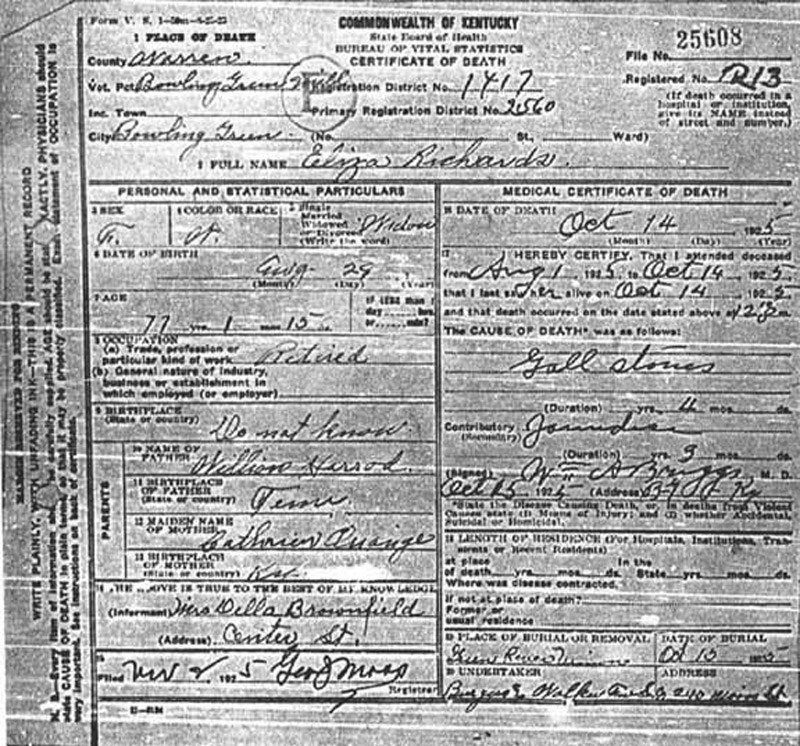 Form V. S. 1-50m-8-25-23
COMMONWEALTH OF KENTUCKY
State Board of Health
BUREAU OF VITAL STATISTICS
CERTIFICATE OF DEATH
File No. 25608
Registered No. R13
(If death occurred in a hospital or institution, give its NAME instead of street and number.)
1 PLACE OF DEATH
County Warren
Vot. Pct Bowling Green
Registration District No. 1417
Inc. Town
Primary Registration District No. 2560
City Bowling Green (No. St., Ward)
2 FULL NAME Eliza Richards.
PERSONAL AND STATISTICAL PARTICULARS
3 SEX
F.
4 COLOR OR RACE
W.
5 Single
Married
Widowed
or Divorced
(Write the word)
Widow
6 DATE OF BIRTH
Aug 29
(Month) (Day) (Year)
7 AGE
77 yrs. 1 mos. 15
If LESS than 1
day hrs.
or min?
8 OCCUPATION
(a) Trade, profession or
particular kind of work Retired
(b) General nature of industry,
business or establishment in
which employed (or employer)
9 BIRTHPLACE
(State or country) Do not know.
PARENTS
10 NAME OF
FATHER William Harrod
11 BIRTHPLACE
OF FATHER
(State or country) Tenn
12 MAIDEN NAME
OF MOTHER
13 BIRTHPLACE
OF MOTHER
(State or country) Ky.
14 THE ABOVE IS TRUE TO THE BEST OF MY KNOWLEDGE
(Informant) Mrs Della Brownfield
(Address) Center St.
15
Filed Nov 2, 1925 Geo J Moss
Registrar
MEDICAL CERTIFICATE OF DEATH
16 DATE OF DEATH
Oct 14 1925
(Month) (Day) (Year)
17 I HEREBY CERTIFY, That I attended deceased
from Aug 1, 1925, to Oct 14, 1925
that I last saw her alive on Oct 14, 1925
and that death occurred on the date stated above at m.
The CAUSE OF DEATH* was as follows:
Gall stones
(Duration) yrs. 4 mos. ds.
Contributory Jaundice
(Secondary)
(Duration) yrs. 3 mos. ds.
(Signed) Wm A Briggs M. D.
Oct 15 1925 (Address) B G Ky
*State the Disease Causing Death, or, in deaths from Violent
Causes state (1) Means of Injury; and (2) whether Accidental,
Suicidal or Homicidal.
18 LENGTH OF RESIDENCE (For Hospitals, Institutions, Transients or Recent Residents)
at place In the
of death yrs. mos. ds. State yrs. mos. ds.
Where was disease contracted,
If not at place of death?
Former or
usual residence
19 PLACE OF BURIAL OR REMOVAL
Green River Union
DATE OF BURIAL
Oct 15 1925
20 UNDERTAKER
ADDRESS
MARGIN RESERVED FOR BINDING
WRITE PLAINLY, WITH UNFADING INK—THIS IS A PERMANENT RECORD